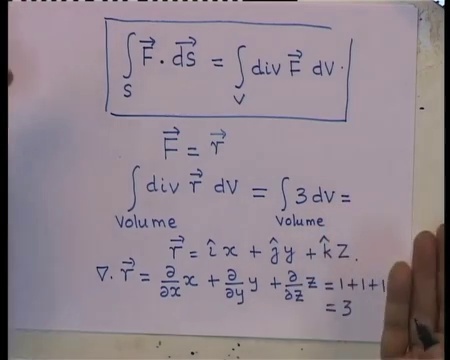 ∫_S F⃗ . d⃗s = ∫_V div F⃗ dV.
F⃗ = r⃗
∫_Volume div r⃗ dV = ∫_Volume 3 dV =
r⃗ = î x + ĵ y + k̂ Z.
∇. r⃗ = ∂/∂x x + ∂/∂y y + ∂/∂z z = 1+1+1
= 3